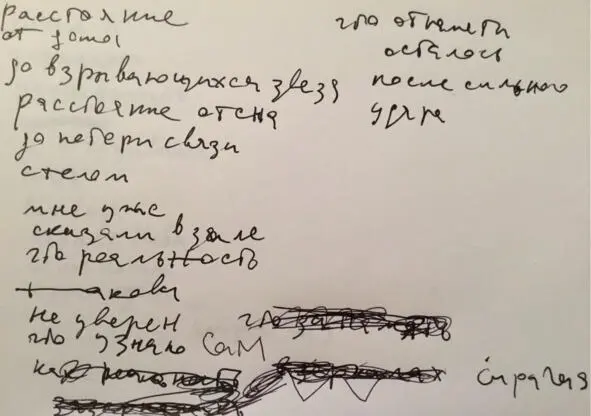 расстояние
от дома
до взрывающихся звезд
расстояние от сна
до потери связи
с телом
мне уже
сказали в зале
что реальность
такова
не уверен
что узнаю сам
что от памяти
осталось
после сильного
удара